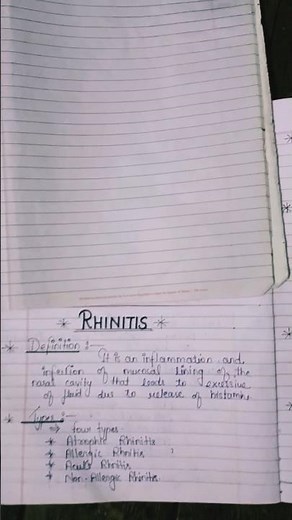 * RHINITIS *
* Definition :-
It is an inflammation and
infection of mucosal lining of the
nasal cavity that leads to excessive
of fluid due to release of histamine
* Types :-
⇒ four types
* Atrophic Rhinitis
* Allergic Rhinitis
* Acute Rhinitis
* Non-Allergic Rhinitis